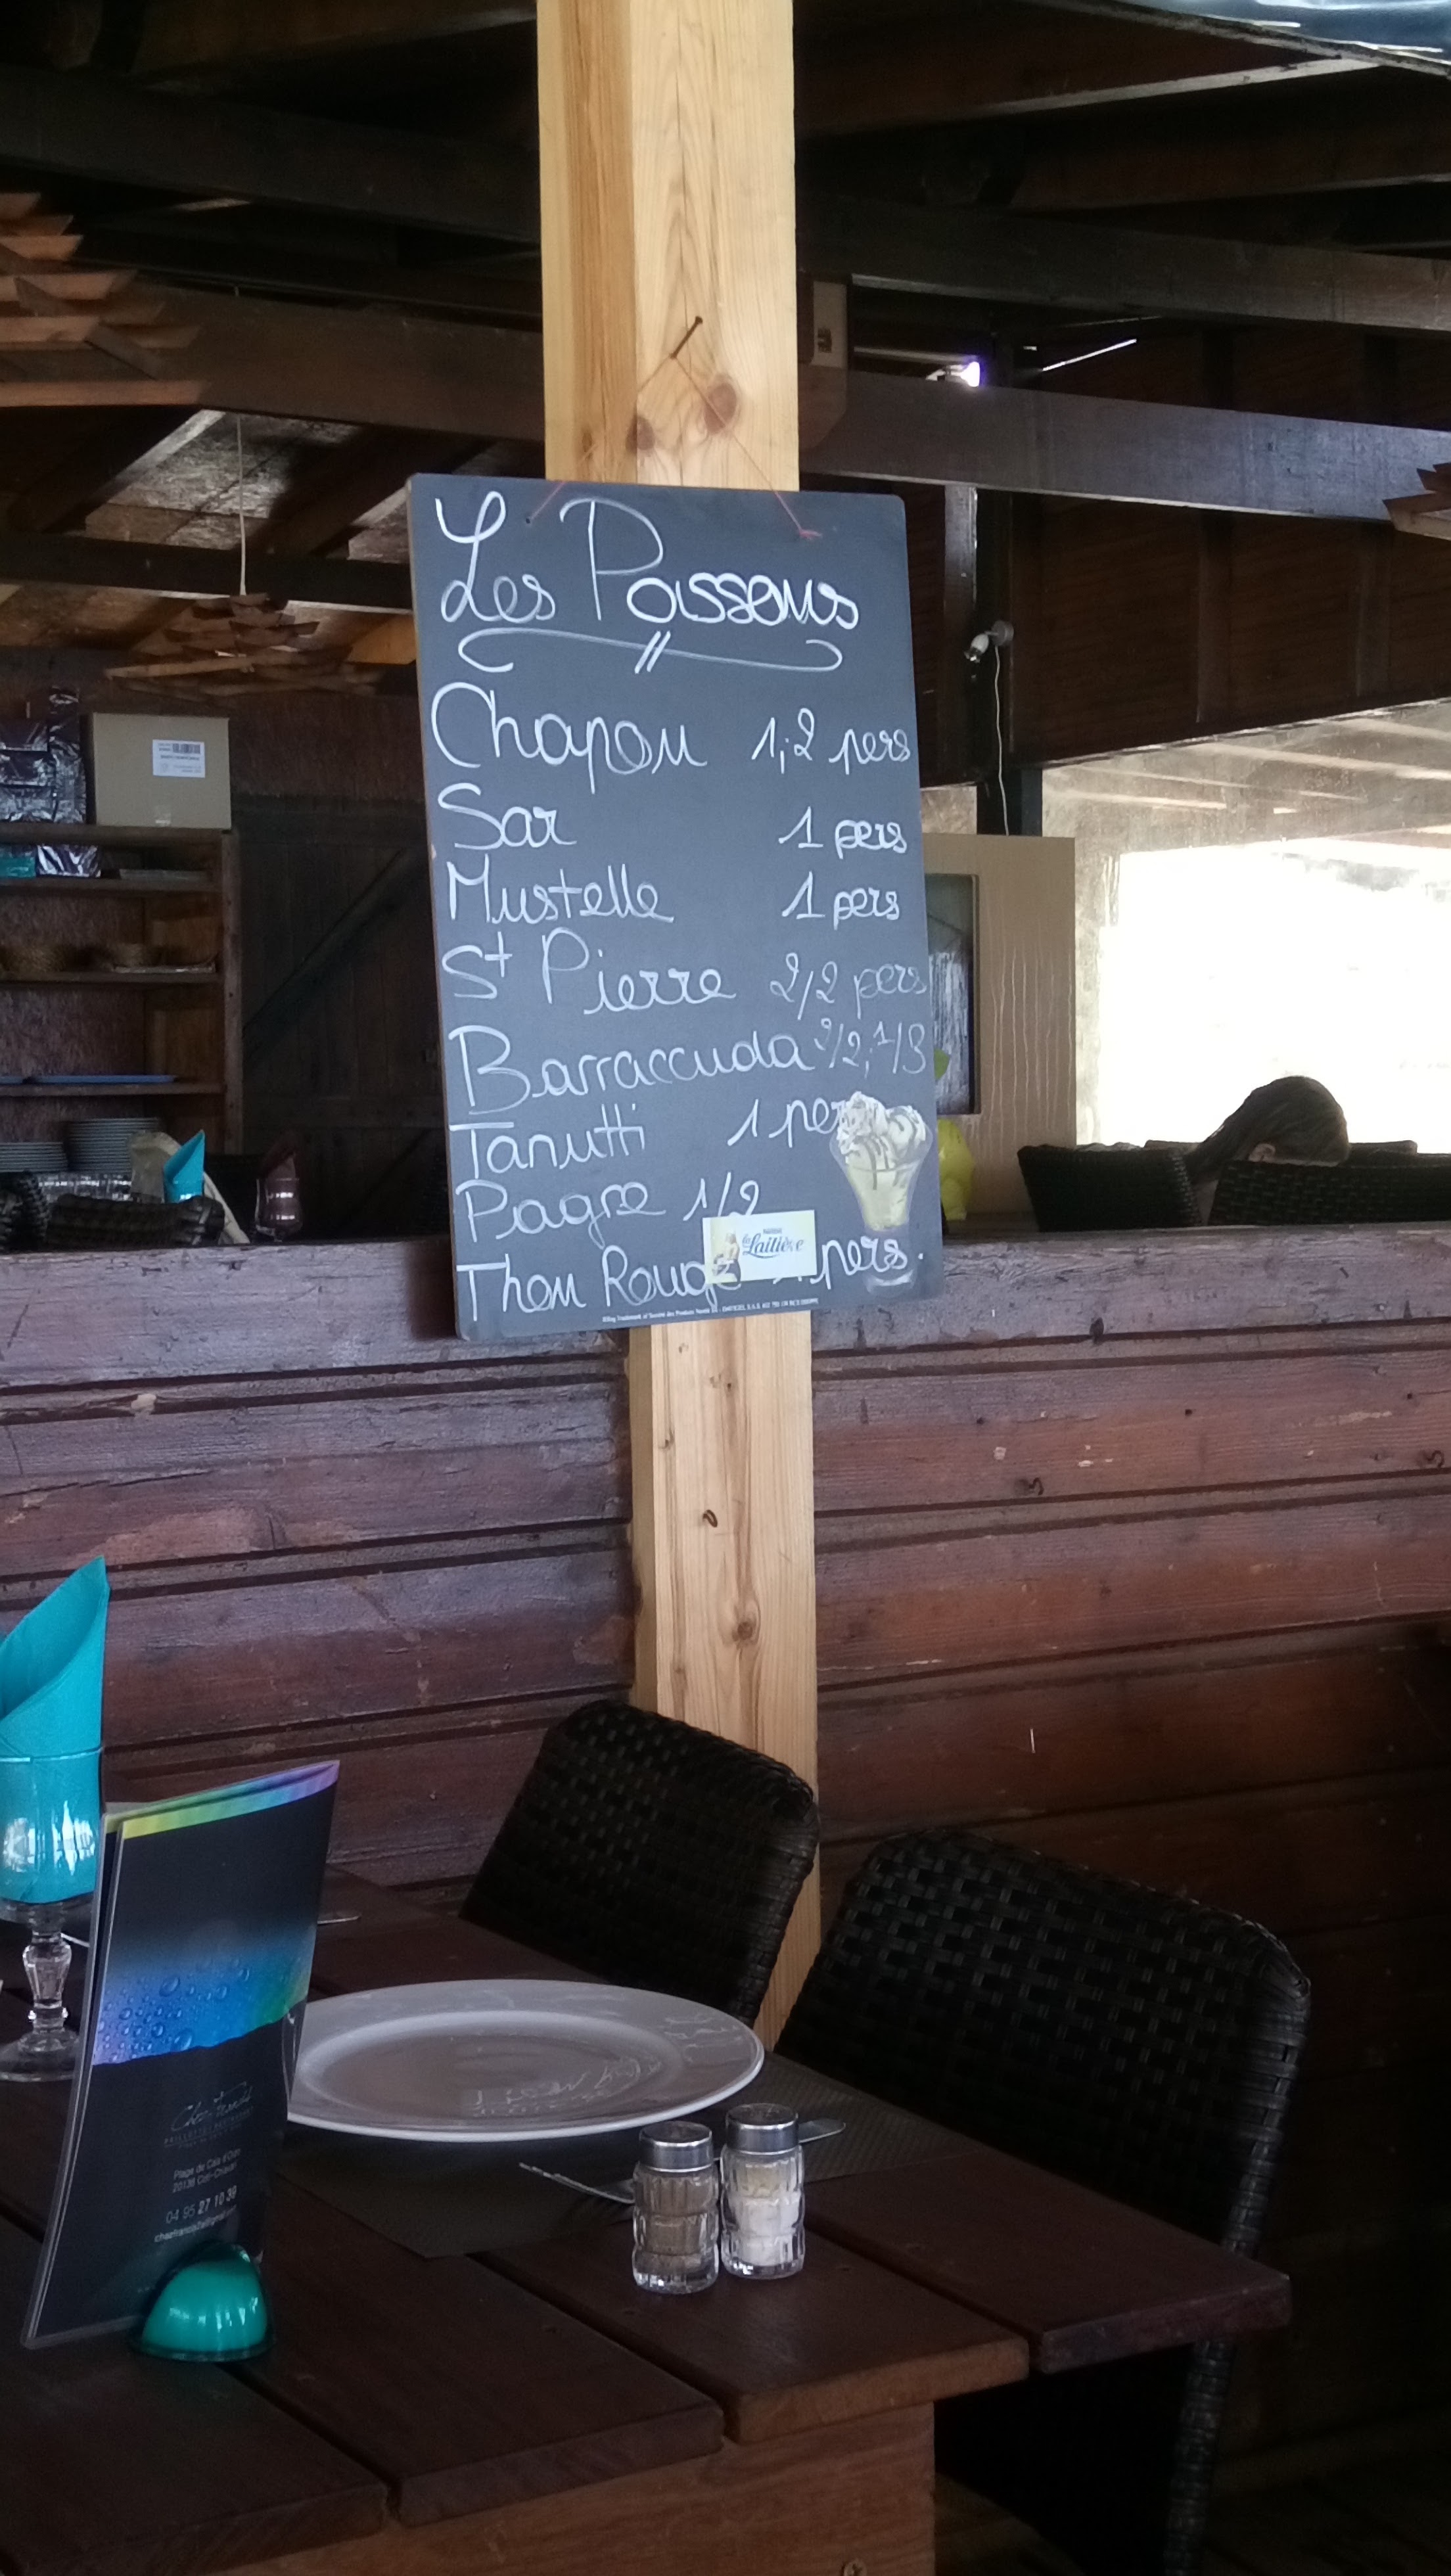 Les Poissons
Chapon 1;2 pers
Sar 1 pers
Mustelle 1 pers
St Pierre 2/2 pers
Barraccuda 2/2;1/3
Tanutti 1 pers
Pagre 1/2
Thon Rouge pers.
la Laitière
Chez Francis
Plage de Cala d'Orzo
20138 Coti-Chiavari
04 95 27 10 39